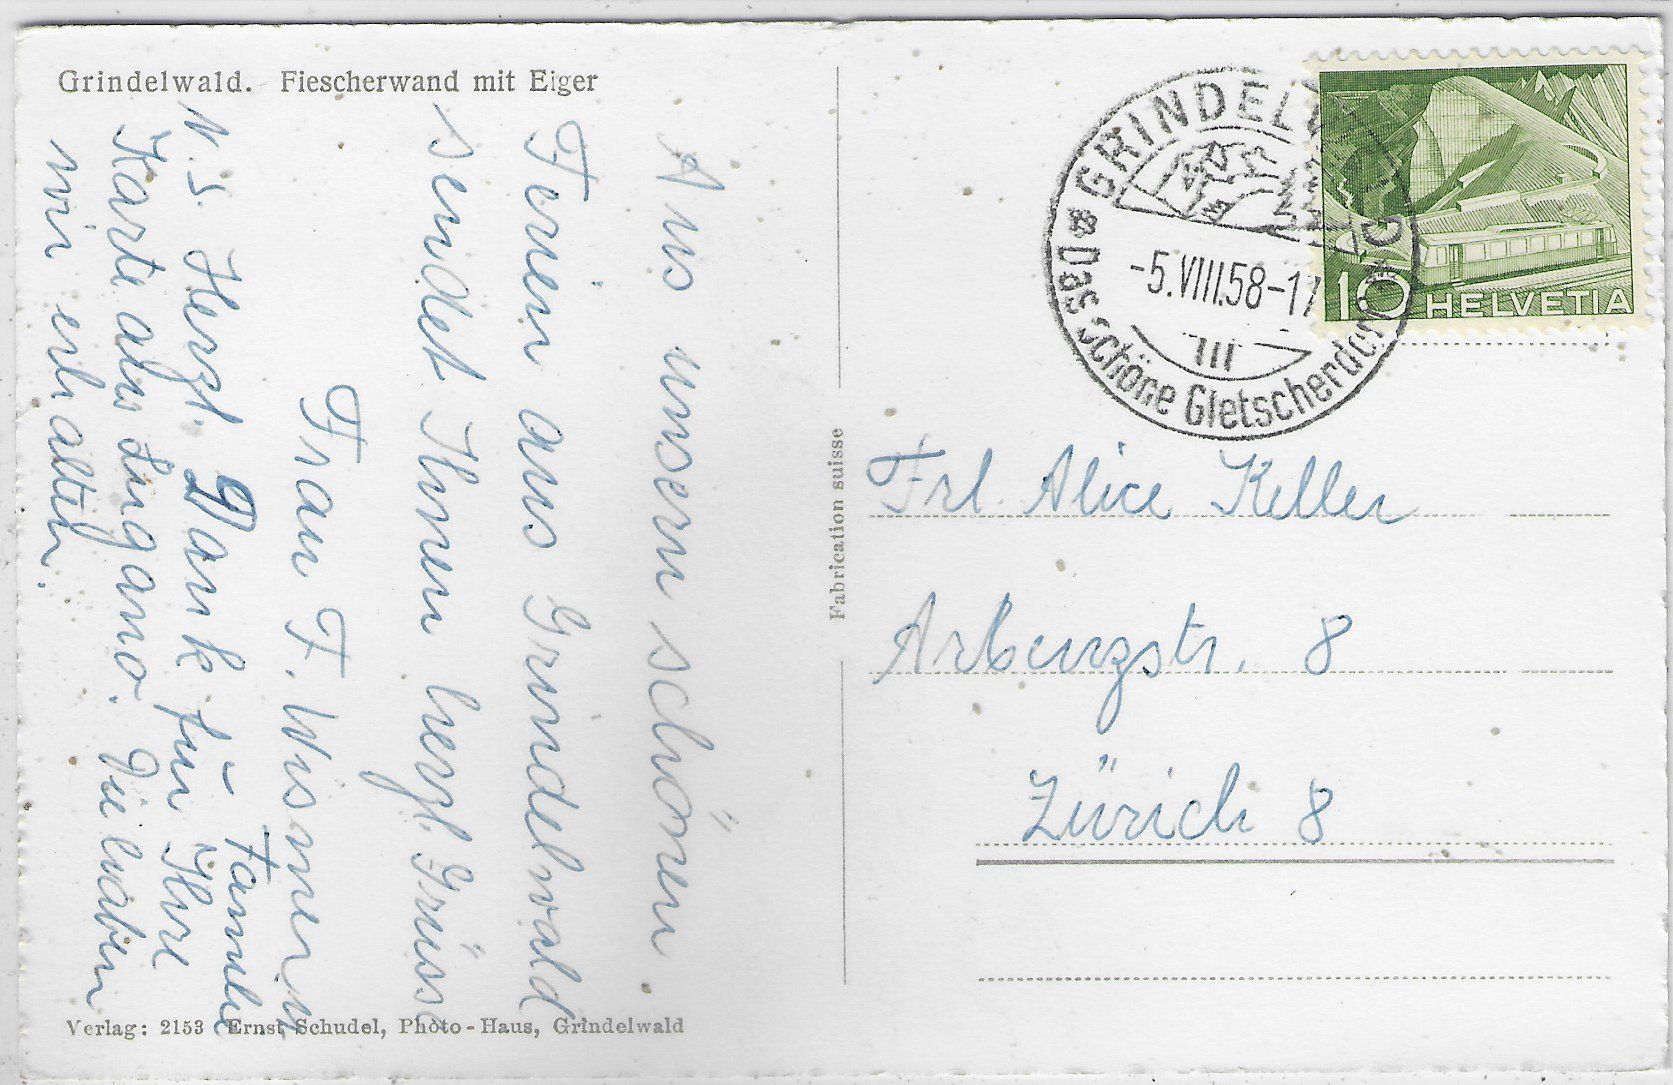 Grindelwald. Fiescherwand mit Eiger
Aus unsern schönen
Ferien aus Grindelwald
sendet Ihnen herzl. Grüsse
Frau F. Wismer
u. Familie
N.S. Herzl. Dank für Ihre
Karte aus Lugano. Die haben
wir erhalten.
Verlag: 2153 Ernst Schudel, Photo-Haus, Grindelwald
Fabrication suisse
GRINDELW
-5.VIII.58-17
Das schöne Gletscherdorf
10 HELVETIA
Frl. Alice Keller
Arbenzstr. 8
Zürich 8